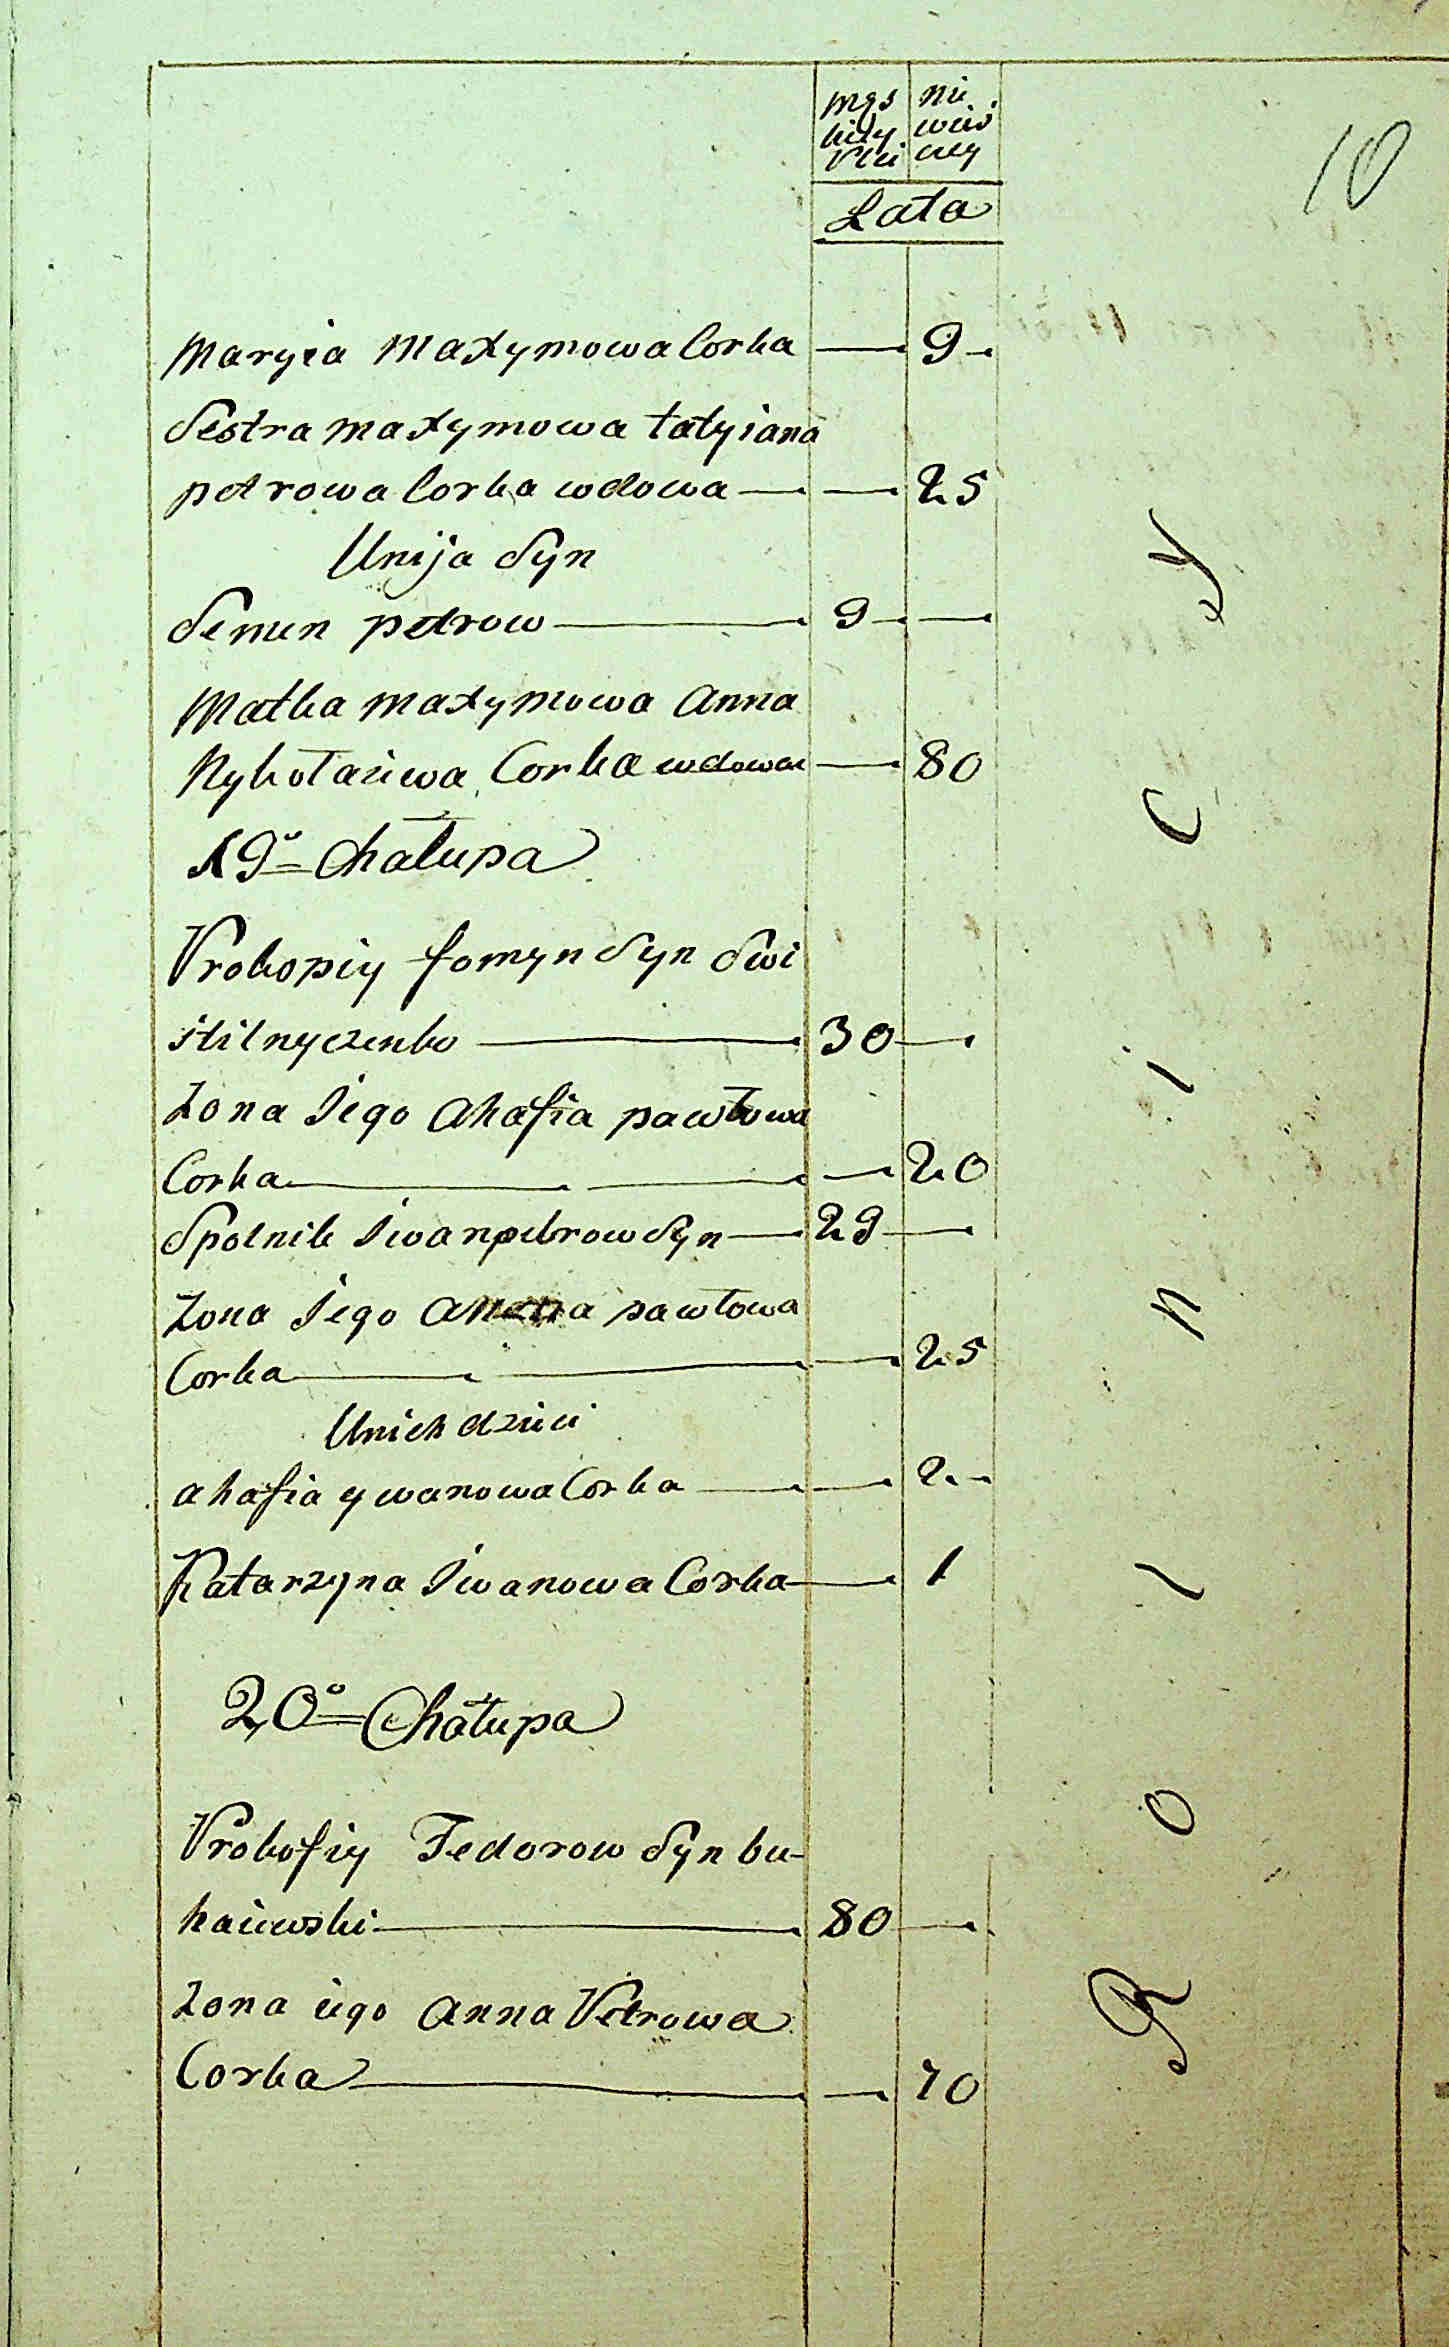 męs nie
kiey wias
Płci ciey
Lata
10
Maryia Maxymowa Corka — 9 —
Sestra Maxymowa tatyiana
petrowa Corka wdowa — — 25
Unija Syn
Semen petrow — 9 — —
Matka Maxymowa Anna
Nykołaiiwa Corka wdowa — 80
19o Chałupa
Prokopiy fomyn Syn Swi
stilnyczenko — 30 —
Zona Jego Ahafia pawłowa
Corka — — 20
Spolnik Jwan petrow Syn — 29 —
Zona Jego pawłowa
Corka — — 25
Unich dzieci
ahafia ywanowa Corka — — 2 —
Katarzyna Jwanowa Corka — 1
20o Chałupa
Prokofiy Fedorow Syn bu-
haiewski — 80 —
Zona iego Anna Petrowa
Corka — — 70
Rolnicy